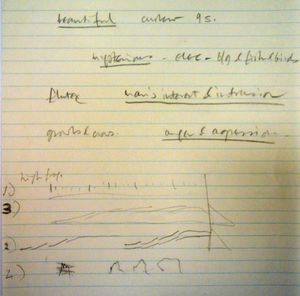 beautiful 9s.
mysterious - elec - & fish & birds
man's interest & intrusion
growls & anger & aggression
high freq.
1)
3)
2)
4)